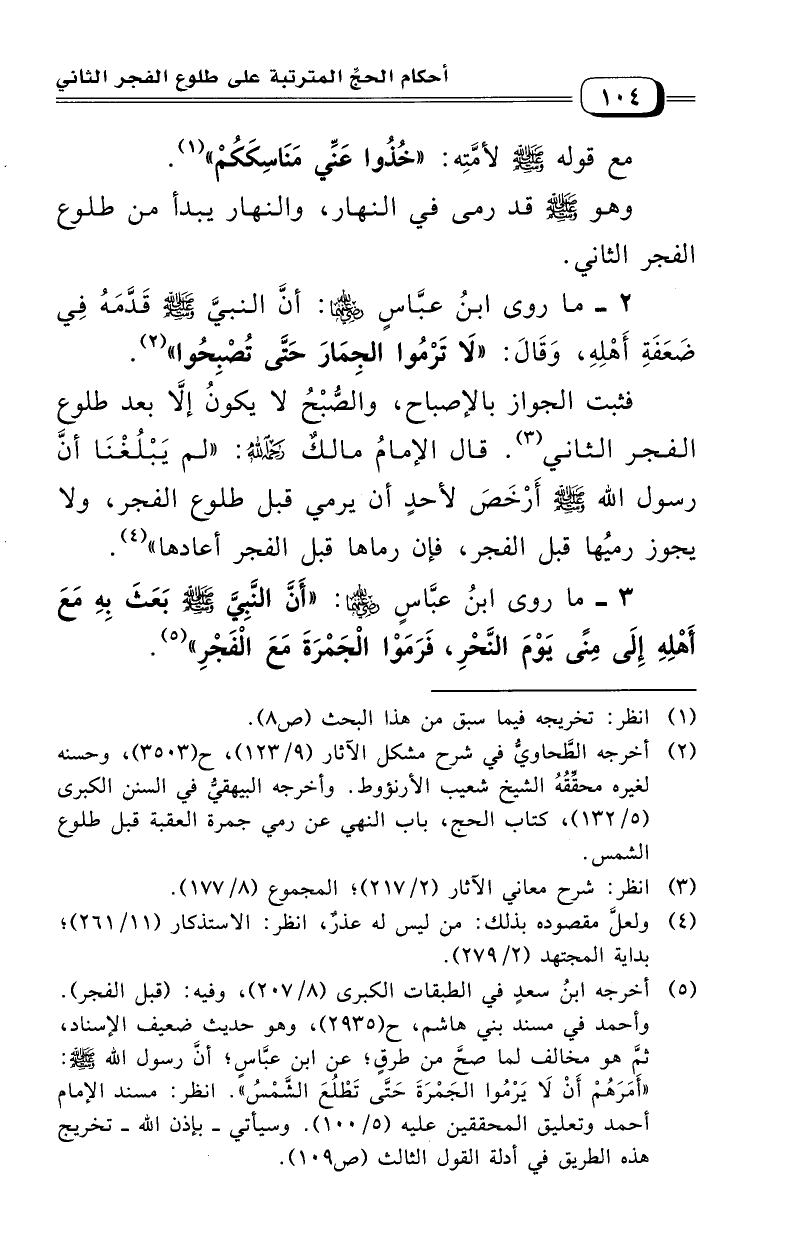 أحكام الحجّ المترتبة على طلوع الفجر الثاني
١٠٤
مع قوله ﷺ لأمَّتِه: «خُذُوا عَنِّي مَنَاسِكَكُمْ»(١).
وهو ﷺ قد رمى في النهار، والنهار يبدأ من طلوع
الفجر الثاني.
٢ ـ ما روى ابنُ عبَّاسٍ رضي الله عنهما: أنَّ النبيَّ ﷺ قَدَّمَهُ فِي
ضَعَفَةِ أَهْلِهِ، وَقَالَ: «لَا تَرْمُوا الجِمَارَ حَتَّى تُصْبِحُوا»(٢).
فثبت الجواز بالإصباح، والصُّبْحُ لا يكونُ إلَّا بعد طلوع
الفجر الثاني(٣). قال الإمامُ مالكٌ رحمه الله: «لم يَبْلُغْنَا أنَّ
رسول الله ﷺ أَرْخَصَ لأحدٍ أن يرمي قبل طلوع الفجر، ولا
يجوز رميُها قبل الفجر، فإن رماها قبل الفجر أعادها»(٤).
٣ ـ ما روى ابنُ عبَّاسٍ رضي الله عنهما: «أَنَّ النَّبِيَّ ﷺ بَعَثَ بِهِ مَعَ
أَهْلِهِ إِلَى مِنًى يَوْمَ النَّحْرِ، فَرَمَوْا الْجَمْرَةَ مَعَ الْفَجْرِ»(٥).
(١) انظر: تخريجه فيما سبق من هذا البحث (ص٨).
(٢) أخرجه الطَّحاويُّ في شرح مشكل الآثار (٩/ ١٢٣)، ح(٣٥٠٣)، وحسنه
لغيره محقِّقُهُ الشيخ شعيب الأرنؤوط. وأخرجه البيهقيُّ في السنن الكبرى
(٥/ ١٣٢)، كتاب الحج، باب النهي عن رمي جمرة العقبة قبل طلوع
الشمس.
(٣) انظر: شرح معاني الآثار (٢/ ٢١٧)؛ المجموع (٨/ ١٧٧).
(٤) ولعلَّ مقصوده بذلك: من ليس له عذرٌ، انظر: الاستذكار (١١/ ٢٦١)؛
بداية المجتهد (٢/ ٢٧٩).
(٥) أخرجه ابنُ سعدٍ في الطبقات الكبرى (٨/ ٢٠٧)، وفيه: (قبل الفجر).
وأحمد في مسند بني هاشم، ح(٢٩٣٥)، وهو حديث ضعيف الإسناد،
ثمَّ هو مخالف لما صحَّ من طرقٍ؛ عن ابن عبَّاسٍ؛ أنَّ رسول الله ﷺ:
«أَمَرَهُمْ أَنْ لَا يَرْمُوا الجَمْرَةَ حَتَّى تَطْلُعَ الشَّمْسُ». انظر: مسند الإمام
أحمد وتعليق المحققين عليه (٥/ ١٠٠). وسيأتي ـ بإذن الله ـ تخريج
هذه الطريق في أدلة القول الثالث (ص١٠٩).